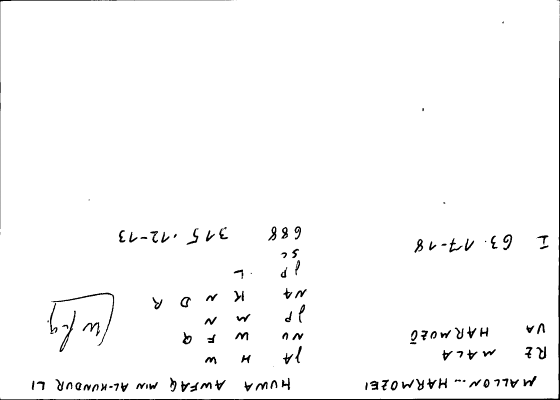 MALLON... HARMOZEI
RZ MALA
VA HARMOZŌ
I 63.17-18
HUWA AWFAQ MIN AL-KUNDUR LI
JA H W
NU W F Q
JP M N
NA K N D R
JP L
SC
688 315.12-13
wfq